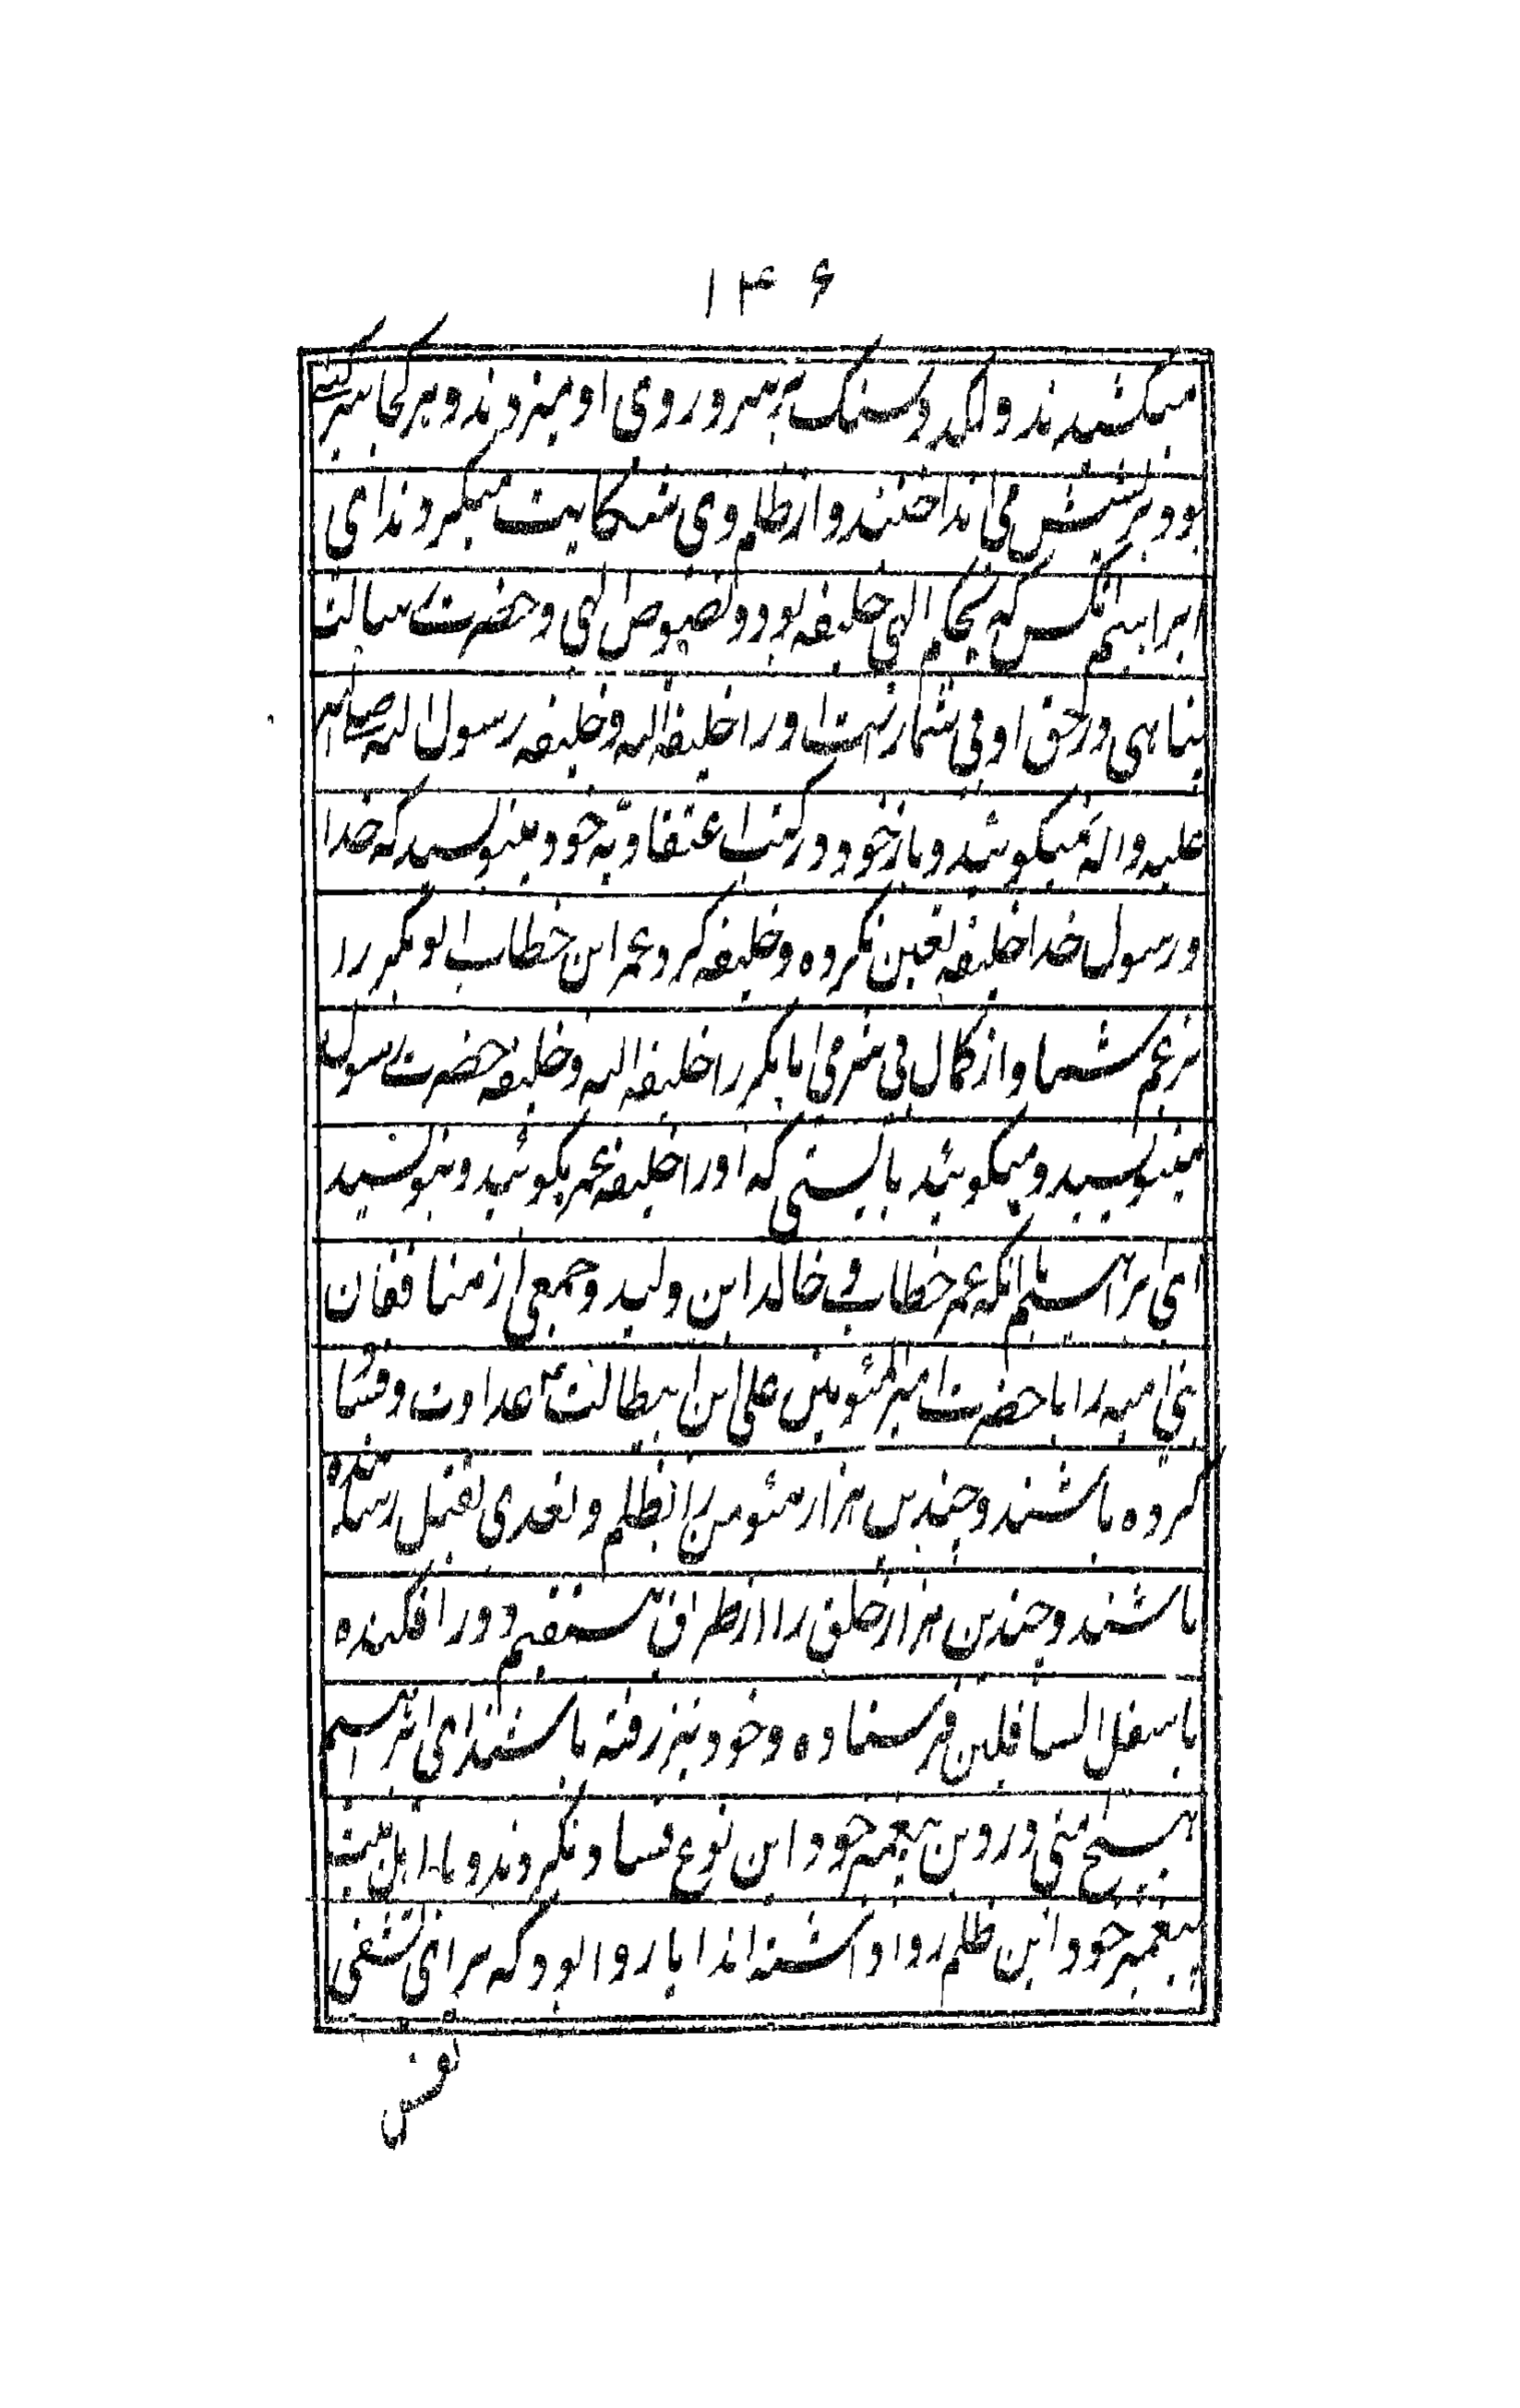 ۱۴۶
میکشیدند و لکد و سنک بر سر و روی او میزدند و هر کجا سرکینی
بود بر ریشش می انداختند و از ظلم وی شکایت میکردند ای
ابراهیم انکس که بحکم الهی خلیفه بود و نصوص الهی و حضرت رسالت
پناهی در حق او بی شمارست او را خلیفة الله و خلیفه رسول الله صلی الله
علیه و اله نمیکوئید و باز خود در کتب اعتقادیه خود مینویسید که خدا
و رسول خدا خلیفه تعین نکرده و خلیفه کرد عمر ابن خطاب ابو بکر را
بزعم شما و از کمال بی شرمی ابابکر را خلیفة الله و خلیفه حضرت رسول
مینویسید و میکوئید بایستی که او را خلیفه عمر بکوئید و بنویسید
ای ابراهیم با انکه عمر خطاب و خالد ابن ولید و جمعی از منافقان
بنی امیه را با حضرت امیر المئومنین علی ابن ابیطالب ع عداوت و فسا
کرده باشند و چندین هزار مئومن را بظلم و تعدی بقتل رسانده
باشند و چندین هزار خلق را از طریق مستقیم دور افکنده
باسفل السافلین فرستاده و خود نیز رفته باشند ای ابراهیم
هیچ امتی در دین پیغمبر خود این نوع فساد نکردند و با اهل بیت
پیغمبر خود این ظلم روا داشته اند ایا روا بود که برای تشفی
نفس